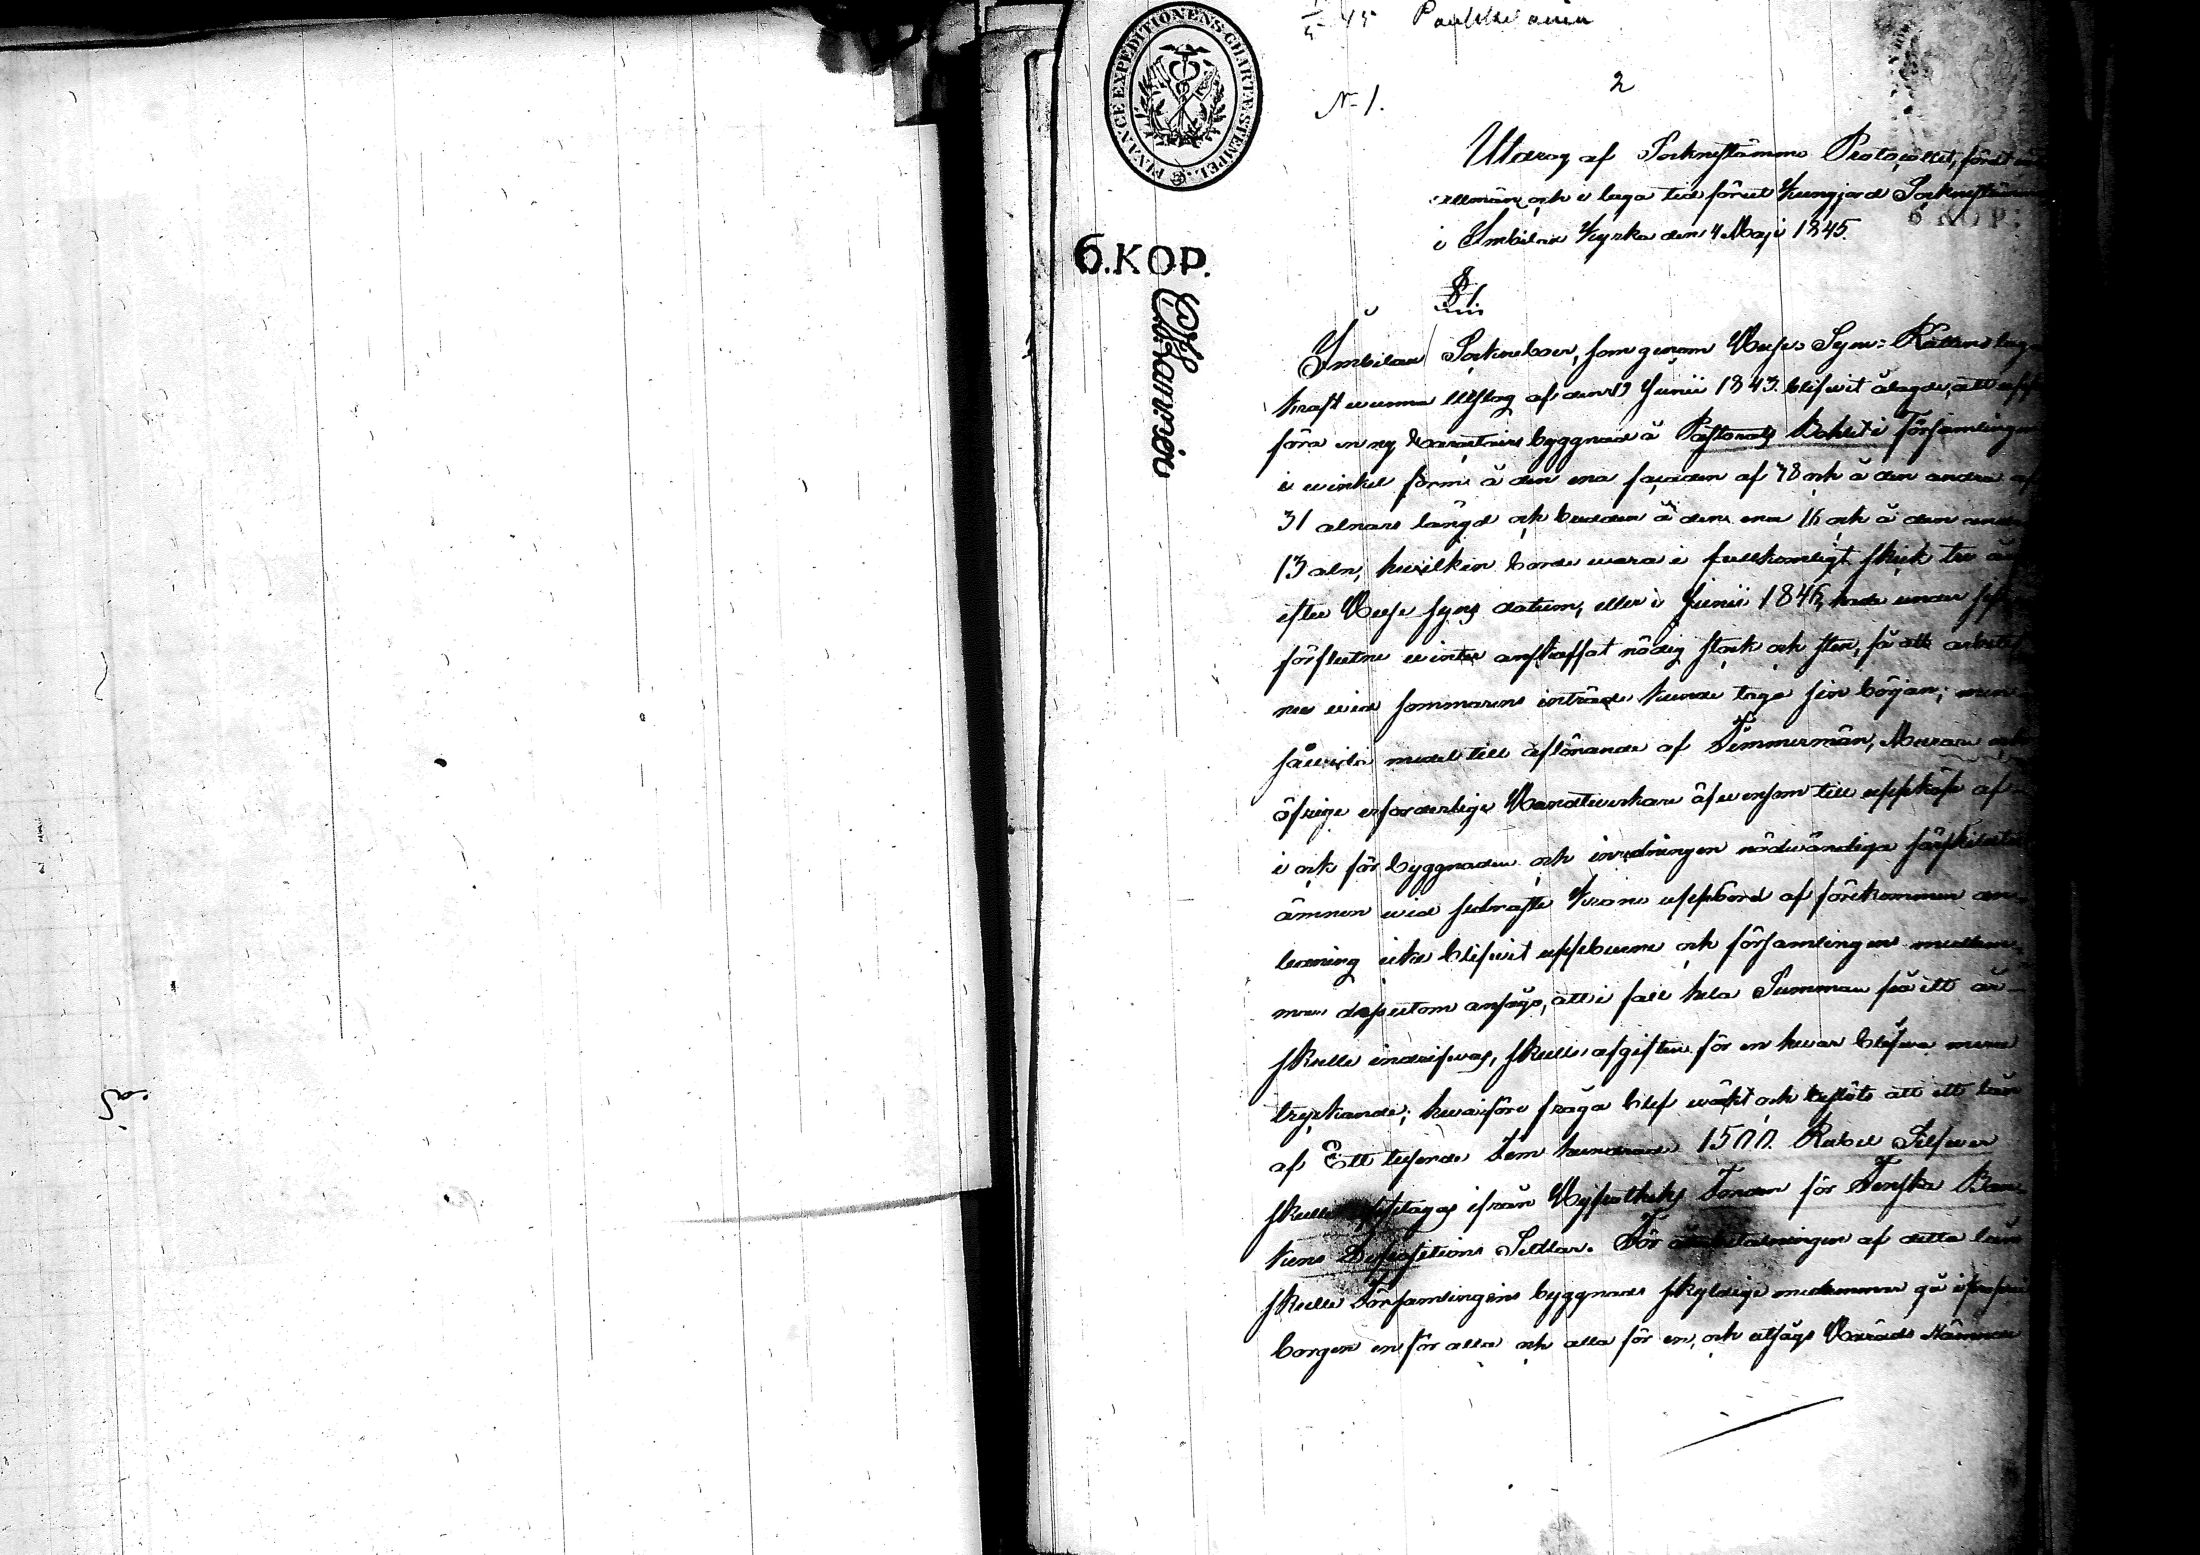 45
2
N 1.
FINANCE EXPEDITIONENS CHARTÆ STEMPEL.
6.KOP.
6 KOP:
Utdrag af Sockenstämmo Protocollet, fördt
allmän och i laga tid förut kungjord Sockenstämma
i Imbilax Kyrka den 4 Maji 1845.
§ 1.
Imbilax Sockneboer, som genom Huse-Syns-Rättens laga
kraft wunna Utslag af den 13 Junii 1843 blifwit ålagde, att upp
föra en ny Caractairs byggnad å Pastorats Bohlet i Församlingen
i winkel form å den ena façaden af 38 och å den andra af
31 alnars längd och bredden å den ena 16 och å den andra
13 aln, hwilken borde wara i fullkomligt skick tre år
efter Huse syns datum, eller i Junii 1846, hade under
förflutne winter anskaffat nödig stock och sten, så att arbetet
wid sommarens inträde kunde taga sin början; men
såwida medel till aflönande af Timmermän, Murare och
öfrige erforderlige Handtwerkare äfwensom till uppköp af
i och för byggnaden och inredningen nödwändiga särskilda
ämnen wid sednaste Krono uppbörd af förekommen an-
ledning icke blifwit uppburne och församlingens medlem-
mar dessutom ansågo, att i fall hela Summan på ett år
skulle indrifwas, skulle afgiften för en hwar blifwa mera
tryckande; hwarföre fråga blef wäckt och beslöts att ett lån
af Ett tusende Fem hundrade 1500 Rubel Silfwer
skulle upptagas ifrån Hypotheks Fonden för Svenska Ban-
kens Depositions Sedlar. För återbetalningen af detta lån
skulle Församlingens byggnads skyldige medlemmar gå i
borgen en för alla och alla för en, och utsågs Härads Nämnde